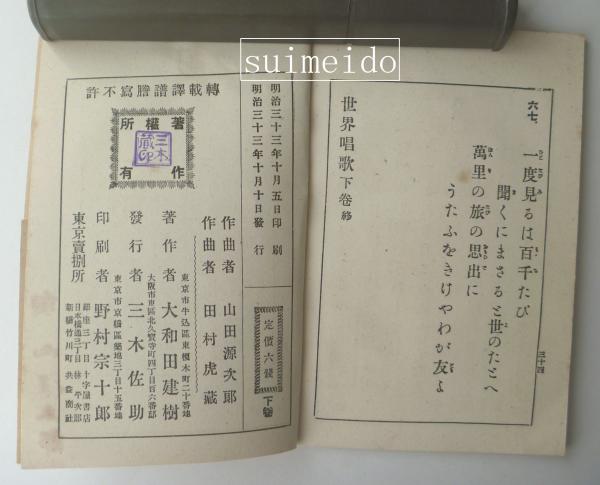 suimeido
六七、
一度見るは百千たび
聞くにまさると世のたとへ
萬里の旅の思出に
うたふをきけやわが友よ
世界唱歌下卷 終
三十四
轉載譯譜謄寫不許
著作權所有
三木藏印
明治三十三年十月五日印刷
明治三十三年十月十日發行
定價六錢
下卷
作曲者 山田源次郎
作曲者 田村虎藏
東京市牛込區東榎木町二十番地
著作者 大和田建樹
大阪市東區北久寳寺町四丁目百六番邸
發行者 三木佐助
東京市京橋區築地三丁目十五番地
印刷者 野村宗十郎
東京賣捌所
銀座三丁目 十字屋書店
日本橋通三丁目 林平次郎
新橋竹川町 共益商社